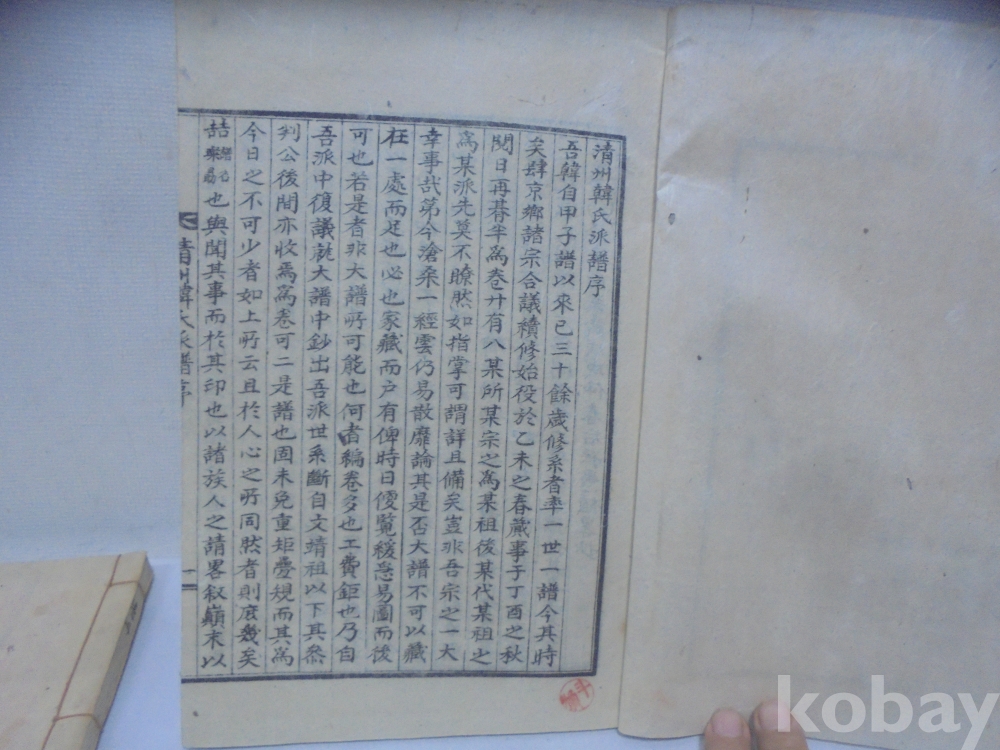 清州韓氏派譜序
吾韓自甲子譜以來已三十餘歲修系者率一世一譜今其時
矣肆京鄕諸宗合議續修始役於乙未之春蕆事于丁酉之秋
閱日再朞半爲卷廾有八某所某宗之爲某祖後某代某祖之
爲某派先莫不瞭然如指掌可謂詳且備矣豈非吾宗之一大
幸事哉第今滄桑一經雲仍易散靡論其是否大譜不可以藏
在一處而足也必也家藏而户有俾時日便覧緩急易圖而後
可也若是者非大譜所可能也何者編卷多也工費鉅也乃自
吾派中復議就大譜中鈔出吾派世系斷自文靖祖以下其叅
判公後間亦收焉爲卷可二是譜也固未免重矩疊規而其爲
今日之不可少者如上所云且於人心之所同然者則庶幾矣
喆 也與聞其事而於其印也以諸族人之請畧叙巓末以
清州韓氏派譜序
一
kobay